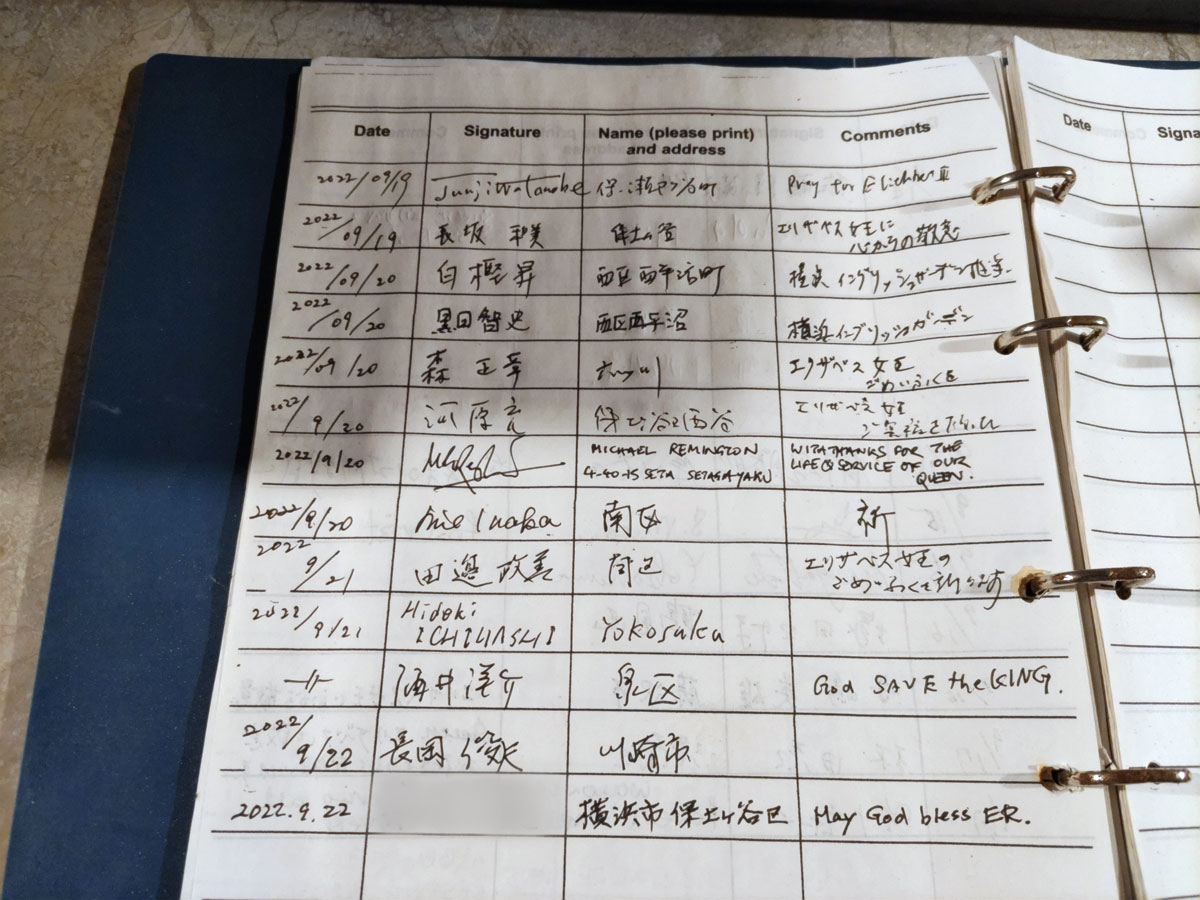 Date Signature Name (please print) and address Comments
2022/09/19 Junji Watanabe Pray for
2022/09/19 長坂 エリザベス女王に
心からの敬意
2022/09/20 白樫昇 西区西平沼町 横浜イングリッシュガーデン
2022/09/20 黒田智史 西区西平沼 横浜イングリッシュガーデン
2022/09/20 森 正幸 六ツ川 エリザベス女王
ごめいふくを
2022/9/20 河原 保土ヶ谷区西谷 エリザベス女王
2022/9/20 MICHAEL REMINGTON WITH THANKS FOR THE
4-40-15 SETA SETAGAYAKU LIFE & SERVICE OF OUR
QUEEN.
2022/9/20 Inaba 南区 祈
2022 9/21 田邉政美 南区 エリザベス女王の
ごめいふくを祈ります
2022/9/21 Hideki
ICHIHASHI Yokosuka
〃 酒井洋介 泉区 God SAVE the KING.
2022/9/22 長岡俊 川崎市
2022.9.22 横浜市保土ヶ谷区 May God bless ER.
Date Signa